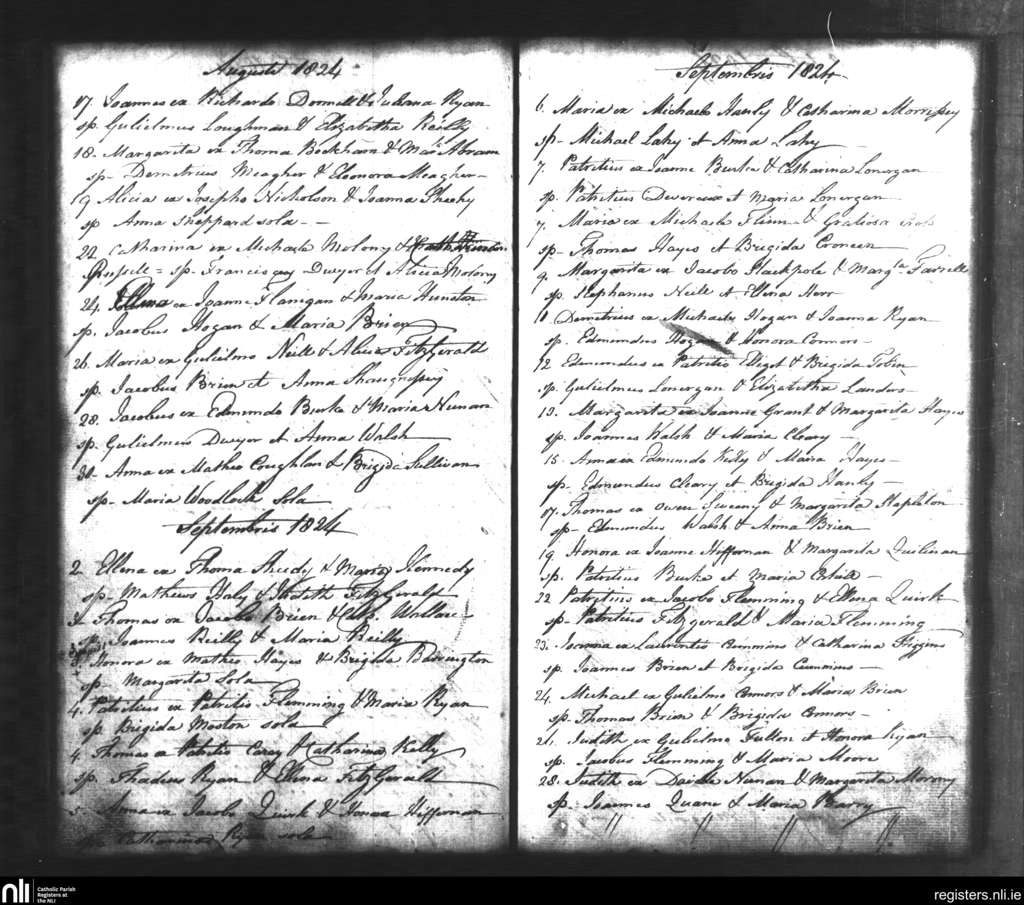 Augusti 1824
17. Joannes ex Richardo Donnell & Juliana Ryan
sp. Gulielmus Loughman & Elizabetha Reilly
18. Margarita ex Thoma Beckham & Abram
sp- Demetrius Meagher & Eleonora Meagher-
19. Alicia ex Josepho Nicholson & Joanna Sheehy
sp Anna Sheppard sola. -
22 Catharina ex Michaele Molony &
Russell = sp. Franciscus Dwyer et Alicia Molony
24. Ellena ex Joanne Flanigan & Maria Hunston
sp. Jacobus Hogan & Maria Brien
26. Maria ex Gulielmo Neill & Alicia FitzGerald
sp. Jacobus Brien et Anna
28. Jacobus ex Edmundo Burke & Maria Nunan
sp. Gulielmus Dwyer et Anna Walsh
30. Anna ex Matheo Coughlan & Brigida Sullivan
sp. Maria Woodlock Sola
Septembris 1824
2 Ellena ex Thoma Sheedy & Maria Kennedy
sp. Matheus Daly & Judith FitzGerald
3. Thomas ex Jacobo Brien & Cath. Wallace
sp. Joannes Reilly & Maria Reilly
3. Honora ex Matheo Hayes & Brigida Barrington
sp. Margarita Sola
4. Patritius ex Patritio Flemming & Maria Ryan
sp. Brigida Moston sola
4 Thomas ex Patritio Carey & Catharina Kelly
sp. Thadeus Ryan & Ellena FitzGerald
5. Anna ex Jacobo Quirk & Honora Heffernan
sp. Catharina sola
Septembris 1824
6. Maria ex Michaele Hanly & Catharina Morrissey
sp- Michael Lahy et Anna Lahy
7. Patritius ex Joanne Burke & Catharina Lonergan
sp. Patritius Devereux et Maria Lonergan
7. Maria ex Michaele Flinn & Gratiosa Cross
sp- Thomas Hayes et Brigida Croneen
9. Margarita ex Jacobo Stackpole & Margta Farrell
sp. Stephanus Neill et Ellena Herr
10 Demetrius ex Michaele Hogan & Joanna Ryan
sp. Edmundus Hogan & Honora Connors-
12 Edmundus ex Patritio Elligot & Brigida Tobin
sp. Gulielmus Lonergan & Elizabetha Landers-
13. Margarita ex Joanne Grant & Margarita Hayes
sp. Joannes Walsh & Maria Cleary -
15. Anna ex Edmundo Kelly & Maria Hayes-
sp- Edmundus Cleary et Brigida Hanly-
17. Thomas ex Owen Sweeny & Margarita Stapleton
sp- Edmundus Walsh & Anna Brien
19. Honora ex Joanne Heffernan & Margarita Quilinan
sp. Patritius Burke et Maria -
22 Patritius ex Jacobo Flemming & Ellena Quirk
sp Patritius Fitzgerald & Maria Flemming
23. Joanna ex Laurentio Cummins & Catharina Higgins
sp. Joannes Brien et Brigida Cummins -
24. Michael ex Gulielmo Connors & Maria Brien
sp. Thomas Brien & Brigida Connors-
Judith ex Gulielmo Fulton et Honora Ryan
sp. Jacobus Flemming & Maria Moore
28. Judith ex Nunan & Margarita Morony
sp- Joannes Quane & Maria
nli
Catholic Parish
Registers at
the NLI
registers.nli.ie